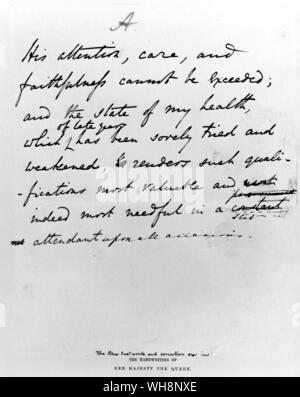 A
His attention, care, and
faithfulness cannot be exceeded;
and the state of my health,
of late years
which, has been sorely tried and
weakened & renders such quali-
-fications most valuable and
indeed most needful in a constant
attendant upon all occasions.
The three last words and correction are in:
THE HANDWRITING OF
HER MAJESTY THE QUEEN.
alamy
alamy stock photo
WH8NXE